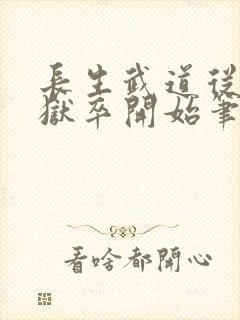 長生武道從
獄卒開始筆
看啥都開心